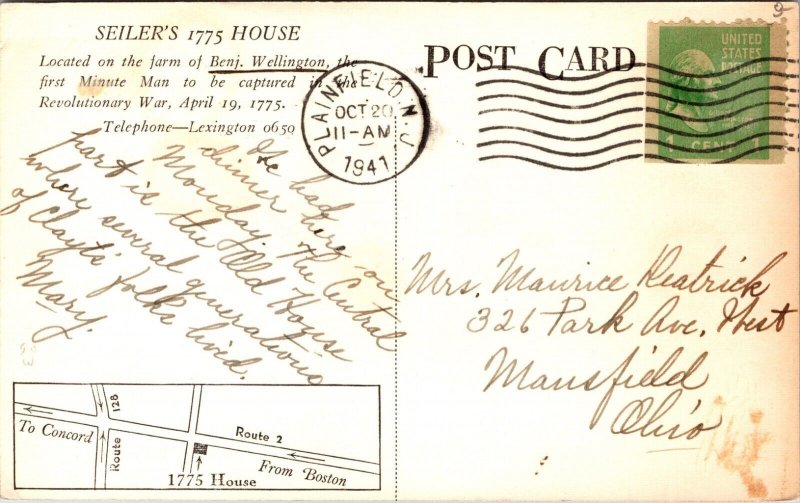 SEILER'S 1775 HOUSE
Located on the farm of Benj. Wellington, the
first Minute Man to be captured in the
Revolutionary War, April 19, 1775.
Telephone—Lexington 0650
We had
dinner here on
Monday. The Central
part is the Old House
where several generations
of Clayt's folks lived.
Mary.
To Concord
Route 128
Route 2
From Boston
1775 House
PLAINFIELD, N.J.
OCT 20
11-AM
1941
POST CARD
UNITED
STATES
POSTAGE
1 CENT 1
Mrs. Maurice Keatrick
326 Park Ave. West
Mansfield
Ohio